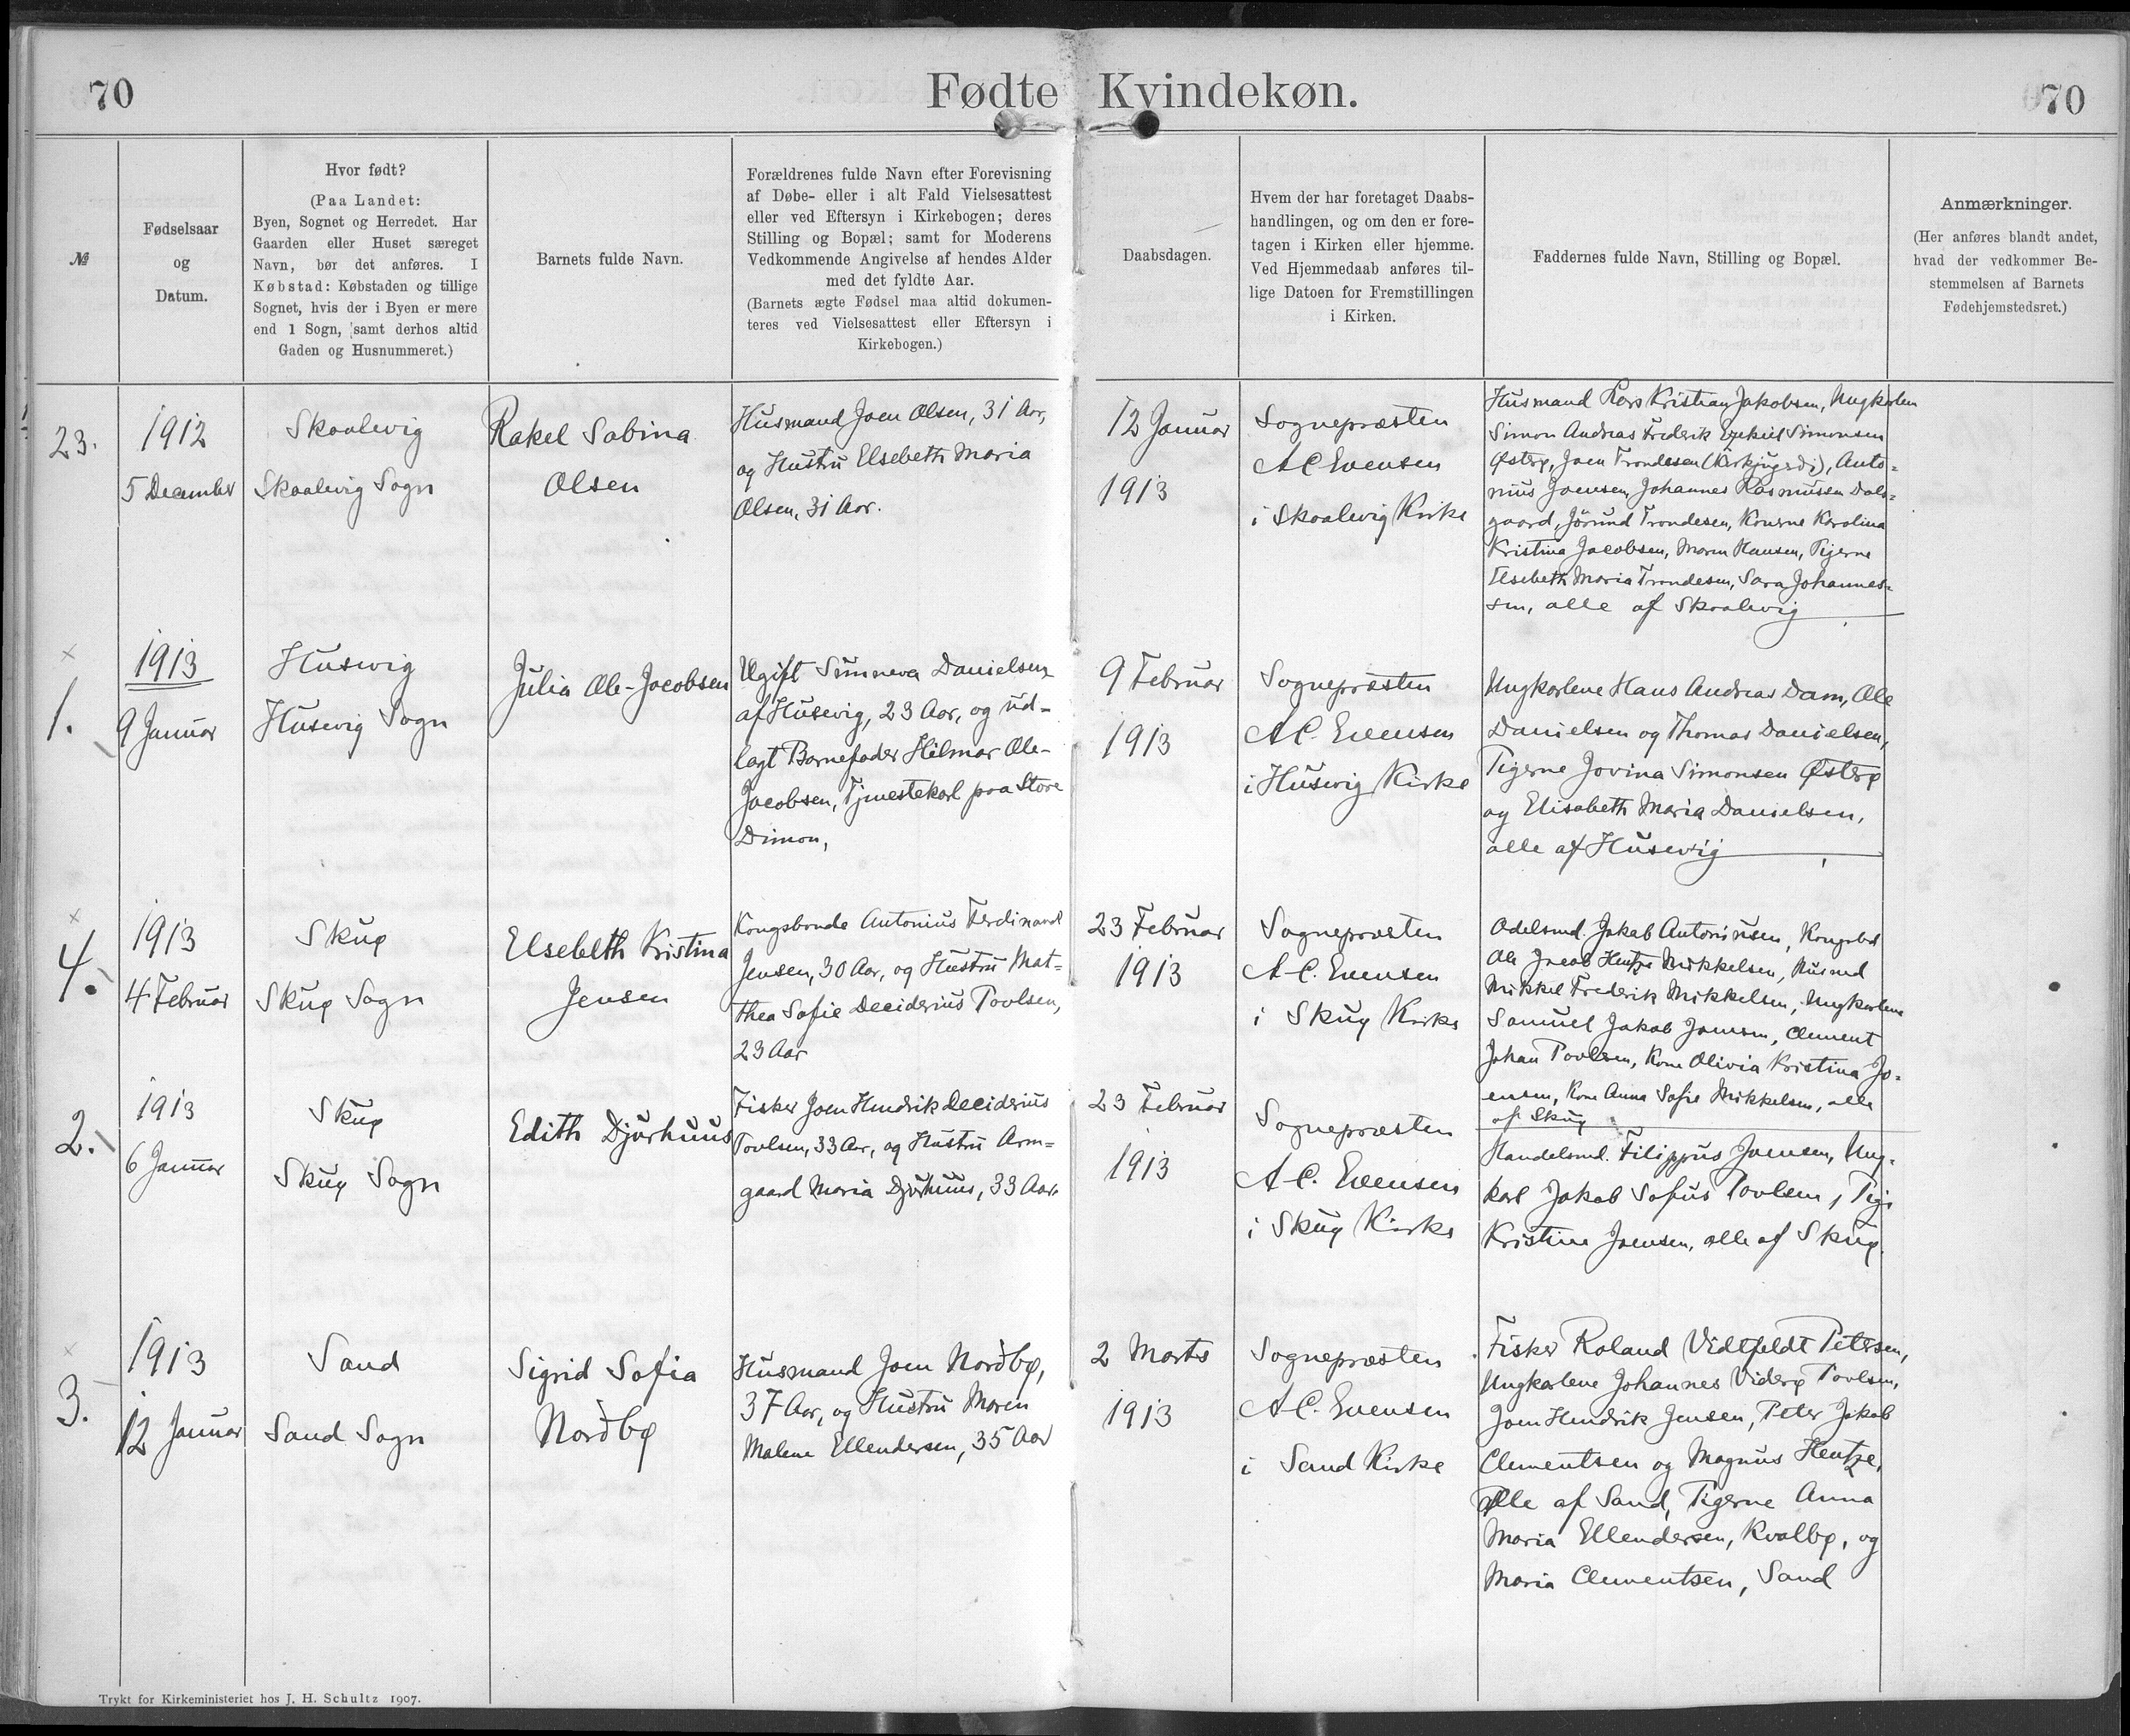 70
Fødte Kvindekøn.
70
№
Fødselsaar
og
Datum.
Hvor født?
(Paa Landet:
Byen, Sognet og Herredet. Har
Gaarden eller Huset særeget
Navn, bør det anføres. I
Købstad: Købstaden og tillige
Sognet, hvis der i Byen er mere
end 1 Sogn, samt derhos altid
Gaden og Husnummeret.)
Barnets fulde Navn.
Forældrenes fulde Navn efter Forevisning
af Døbe- eller i alt Fald Vielsesattest
eller ved Eftersyn i Kirkebogen; deres
Stilling og Bopæl; samt for Moderens
Vedkommende Angivelse af hendes Alder
med det fyldte Aar.
(Barnets ægte Fødsel maa altid dokumen-
teres ved Vielsesattest eller Eftersyn i
Kirkebogen.)
Daabsdagen.
Hvem der har foretaget Daabs-
handlingen, og om den er fore-
tagen i Kirken eller hjemme.
Ved Hjemmedaab anføres til-
lige Datoen for Fremstillingen
i Kirken.
Faddernes fulde Navn, Stilling og Bopæl.
Anmærkninger.
(Her anføres blandt andet,
hvad der vedkommer Be-
stemmelsen af Barnets
Fødehjemstedsret.)
23.
1912
5 December
Skaalevig
Skaalevig Sogn
Rakel Sabina
Olsen
Husmand Joen Olsen, 31 Aar,
og Hustru Elsebeth Maria
Olsen, 31 Aar.
12 Januar
1913
Sognepræsten
A C Evensen
i Skaalevig Kirke
Husmand Kristian Jakobsen, Ungkarlen
Simon Andreas Frederik Ezekiel Simonsen
Østerø, Joen Trondesen (Kirkjugerdi), Anto-
nius Joensen, Johannes Rasmussen Dals-
gaard, Jórund Trondesen, Konerne Karolina
Kristina Jacobsen, Maren Hansen, Pigerne
Elsebeth Maria Trondesen, Sara Johannes-
sen, alle af Skaalevig
1.
1913
9 Januar
Husevig
Husevig Sogn
Julia Ole-Jacobsen
Ugift Sunneva Danielsen
af Husevig, 23 Aar, og ud-
lagt Barnefader Hilmar Ole-
Jacobsen, Tjenestekarl paa Store
Dimon,
9 Februar
1913
Sognepræsten
A C. Evensen
i Husevig Kirke
Ungkarlene Hans Andreas Dam, Ole
Danielsen og Thomas Danielsen,
Pigerne Jovina Simonsen Østerø
og Elisabeth Maria Danielsen,
alle af Husevig
4.
1913
4 Februar
Skuø
Skuø Sogn
Elsebeth Kristina
Jensen
Kongsbonde Antonius Ferdinand
Jensen, 30 Aar, og Hustru Mat-
thea Sofie Deciderius Poulsen,
23 Aar
23 Februar
1913
Sognepræsten
A C. Evensen
i Skuø Kirke
Odelsmd. Jakob Antoniusen, Kongsbd
Ole Jacob Hentze Mikkelsen, Husmd
Mikkel Frederik Mikkelsen, Ungkarlene
Samuel Jakob Joensen, Clement
Johan Poulsen, Kone Olivia Kristina Jo-
ensen, Kone Anna Sofie Mikkelsen, alle
af Skuø
2.
1913
6 Januar
Skuø
Skuø Sogn
Edith Djurhuus
Fisker Joen Hendrik Deciderius
Poulsen, 33 Aar, og Hustru Arm-
gaard Maria Djurhuus, 33 Aar.
23 Februar
1913
Sognepræsten
A C. Evensen
i Skuø Kirke
Handelsmd. Filippus Joensen, Ung-
karl Jakob Sofus Poulsen, Pige
Kristine Joensen, alle af Skuø.
3.
1913
12 Januar
Sand
Sand Sogn
Sigrid Sofia
Norðbø
Husmand Joen Norðbø,
37 Aar, og Hustru Maren
Malene Ellendersen, 35 Aar
2 Marts
1913
Sognepræsten
A C. Evensen
i Sand Kirke
Fisker Roland Vidtfeldt Petersen,
Ungkarlene Johannes Viderø Poulsen,
Joen Hendrik Jensen, Peter Jakob
Clementsen og Magnus Hentze,
Alle af Sand, Pigerne Anna
Maria Ellendersen, Kvalbø, og
Maria Clementsen, Sand
Trykt for Kirkeministeriet hos J. H. Schultz 1907.